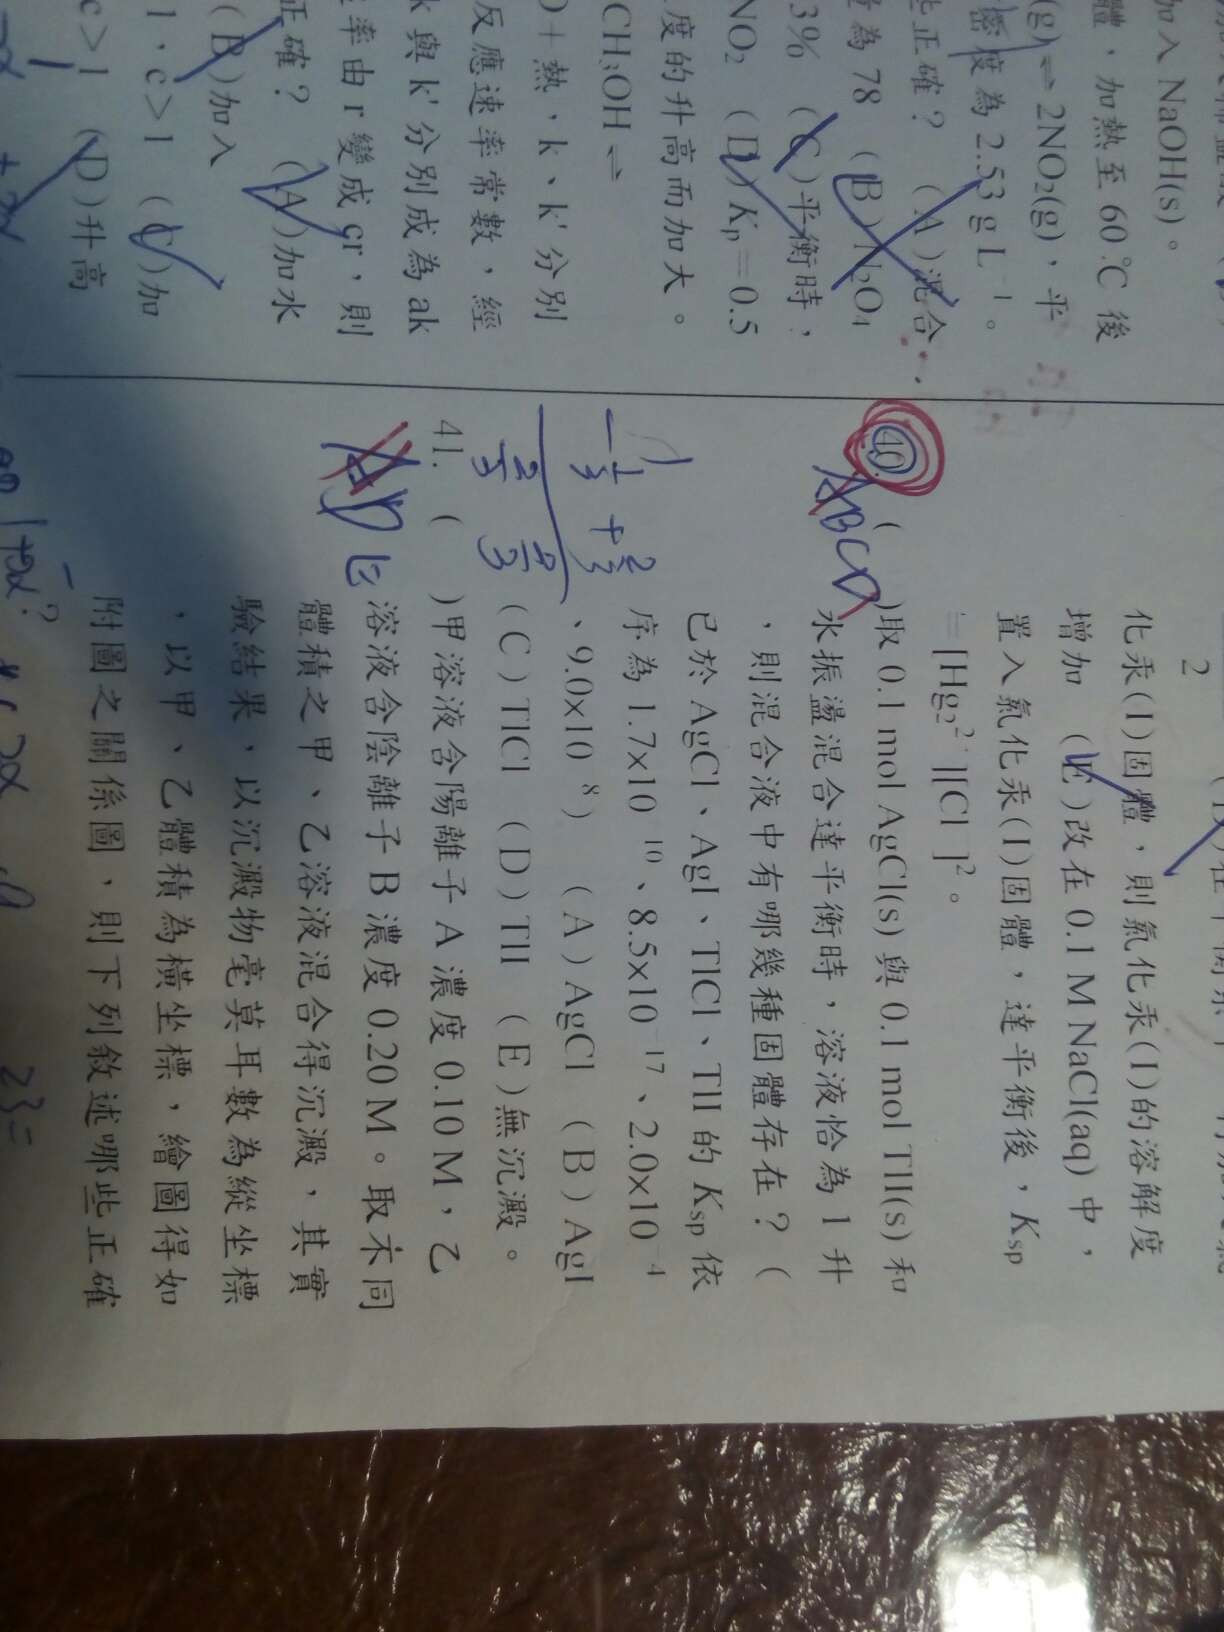 加入 NaOH(s)。
體，加熱至 60℃ 後
(g) ⇌ 2NO₂(g)，平
密度為 2.53 g L⁻¹。
正確？ (A)混合
為 78 (B) N₂O₄
3% (C)平衡時，
NO₂ (D) Kp＝0.5
度的升高而加大。
CH₃OH ⇌
O＋熱，k、k'分別
反應速率常數，經
k 與 k'分別成為 ak
率由 r 變成 cr，則
正確？ (A)加水
(B)加入
1，c＞1 (C)加
c＞1 (D)升高
2
化汞(I)固體，則氯化汞(I)的溶解度
增加 (E)改在 0.1 M NaCl(aq) 中，
置入氯化汞(I)固體，達平衡後，Ksp
＝[Hg₂²⁺][Cl⁻]²。
40. ( )取 0.1 mol AgCl(s) 與 0.1 mol TlI(s) 和
ABCD
水振盪混合達平衡時，溶液恰為 1 升
，則混合液中有哪幾種固體存在？（
已於 AgCl、AgI、TlCl、TlI 的 Ksp 依
序為 1.7x10⁻¹⁰、8.5x10⁻¹⁷、2.0x10⁻⁴
、9.0x10⁻⁸） (A) AgCl (B) AgI
(C) TlCl (D) TlI (E)無沉澱。
41. ( )甲溶液含陽離子 A 濃度 0.10 M，乙
溶液含陰離子 B 濃度 0.20 M。取不同
體積之甲、乙溶液混合得沉澱，其實
驗結果，以沉澱物毫莫耳數為縱坐標
，以甲、乙體積為橫坐標，繪圖得如
附圖之關係圖，則下列敘述哪些正確